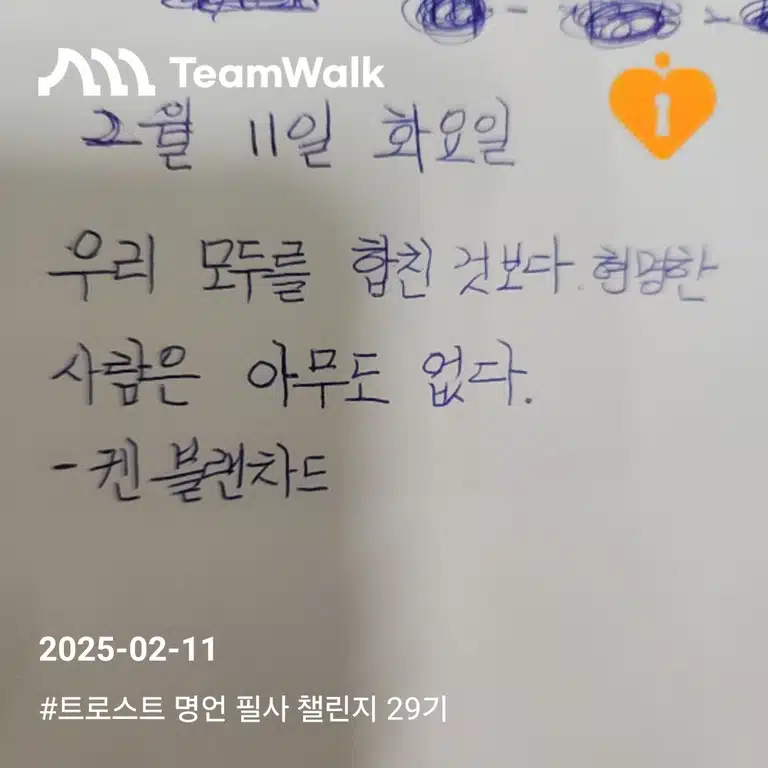 TeamWalk
2월 11일 화요일
우리 모두를 합친 것보다. 현명한
사람은 아무도 없다.
- 켄 블랜차드
2025-02-11
#트로스트 명언 필사 챌린지 29기